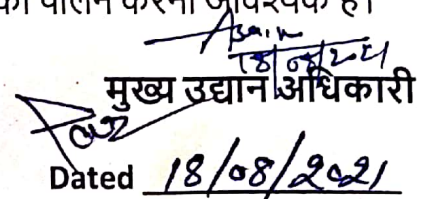 का पालन करना आवश्यक है।
18/08/2021
मुख्य उद्यान अधिकारी
Dated 18/08/2021